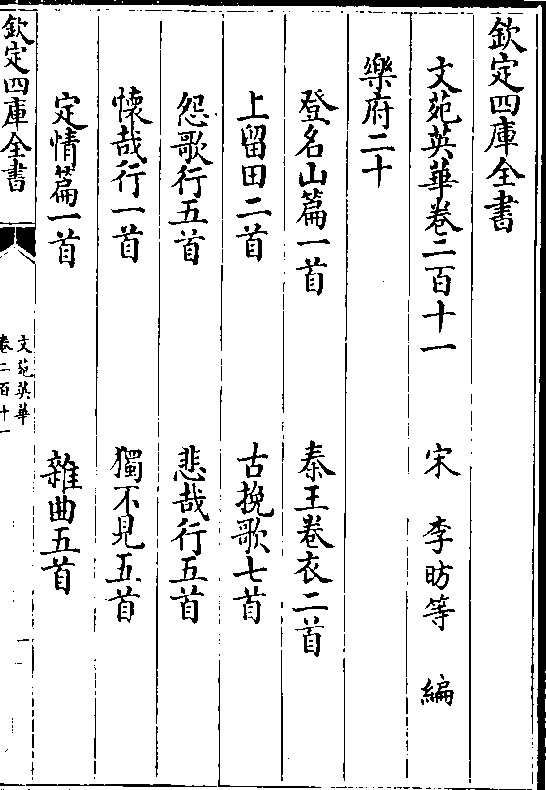 欽定四庫全書
文苑英華卷二百十一 宋 李昉等 編
樂府二十
登名山篇一首 秦王卷衣二首
上留田二首 古挽歌七首
怨歌行五首 悲哉行五首
懷哉行一首 獨不見五首
定情篇一首 雜曲五首
欽定四庫全書
文苑英華
卷二百十一
一